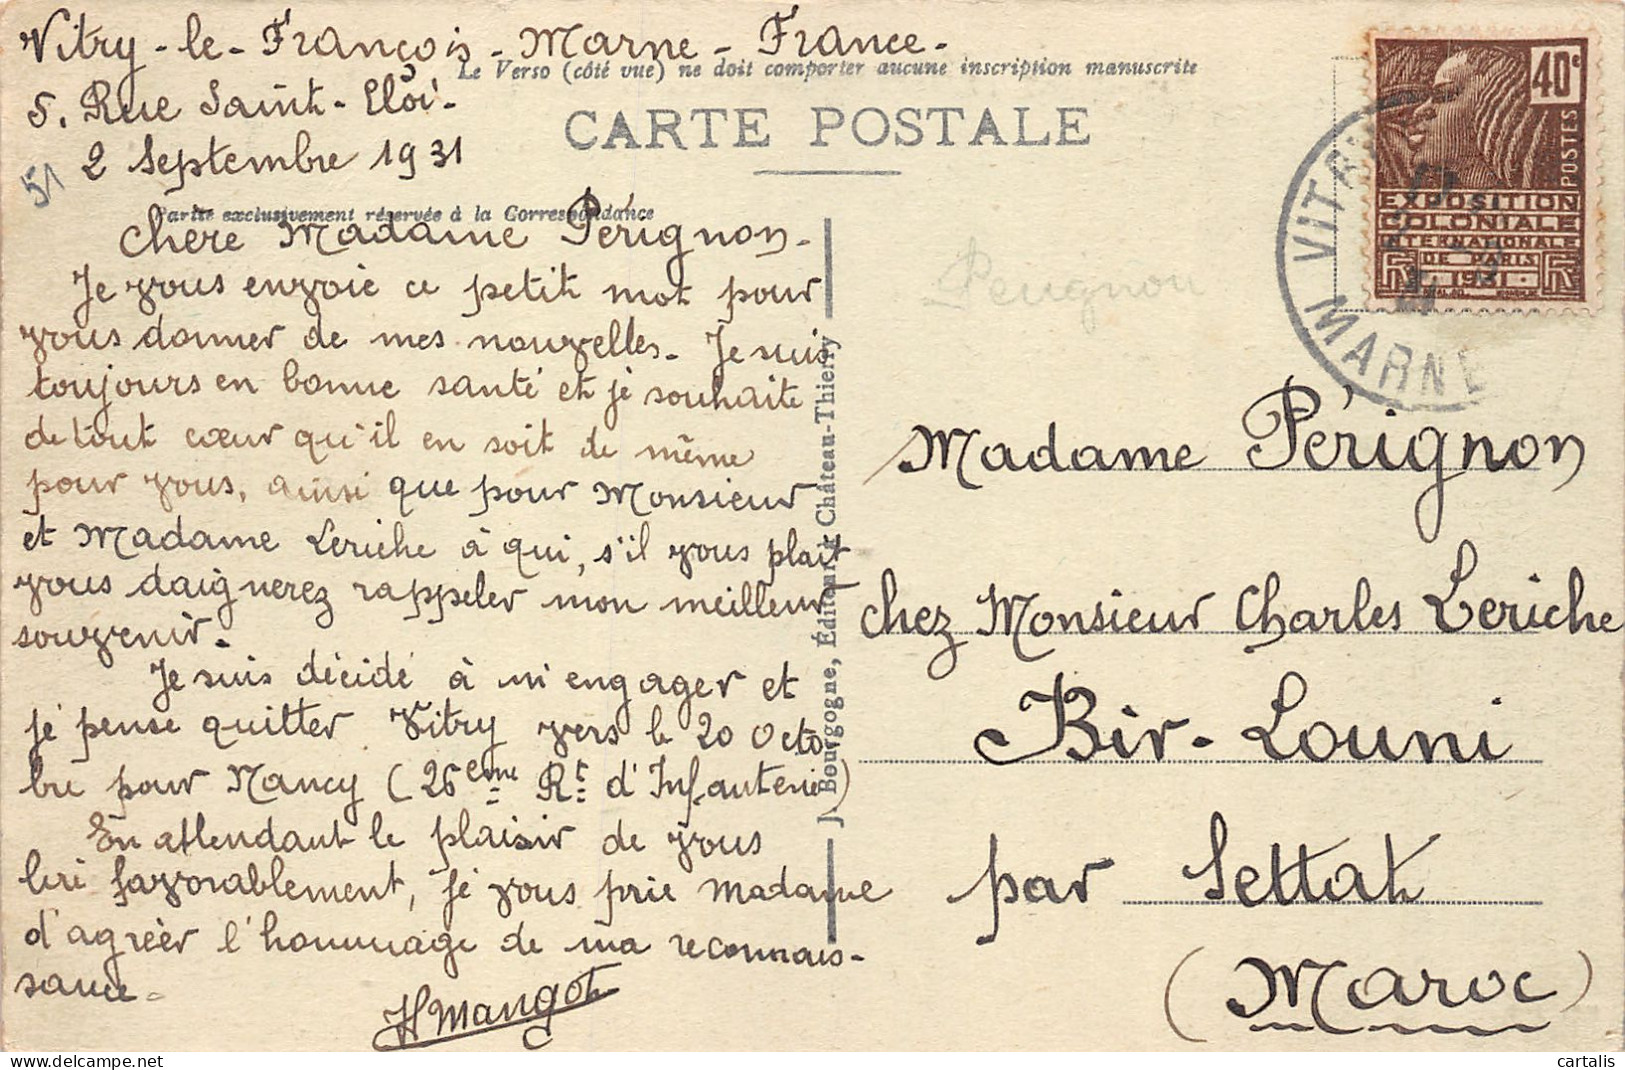 Vitry-le-François - Marne - France -
Le Verso (côté vue) ne doit comporter aucune inscription manuscrite
5. Rue Saint-Eloi -
CARTE POSTALE
2 Septembre 1931
51
Partie exclusivement réservée à la Correspondance
Chère Madame Pérignon.
Je vous envoie ce petit mot pour
vous donner de mes nouvelles. Je suis
toujours en bonne santé et je souhaite
de tout cœur qu'il en soit de même
pour vous, ainsi que pour Monsieur
et Madame Leriche à qui, s'il vous plait
vous daignerez rappeler mon meilleur
souvenir.
Je suis décidé à m'engager et
je pense quitter Vitry vers le 20 Octo
bre pour Nancy (26ème Rt d'Infanterie)
En attendant le plaisir de vous
lire favorablement, je vous prie Madame
d'agréer l'hommage de ma reconnais-
sance.
HMangot
J. Bourgogne, Éditeur à Château-Thierry
Perignon
40c
POSTES
EXPOSITION
COLONIALE
INTERNATIONALE
DE PARIS
1931
RF RF
VITRY
MARNE
Madame Pérignon
chez Monsieur Charles Leriche
Bir-Louni
par Settat
(Maroc)
cartalis